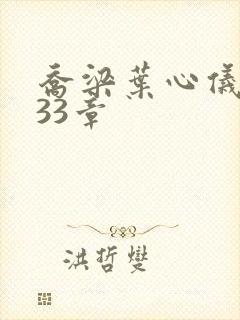 乔梁叶心仪
33章
洪哲燮